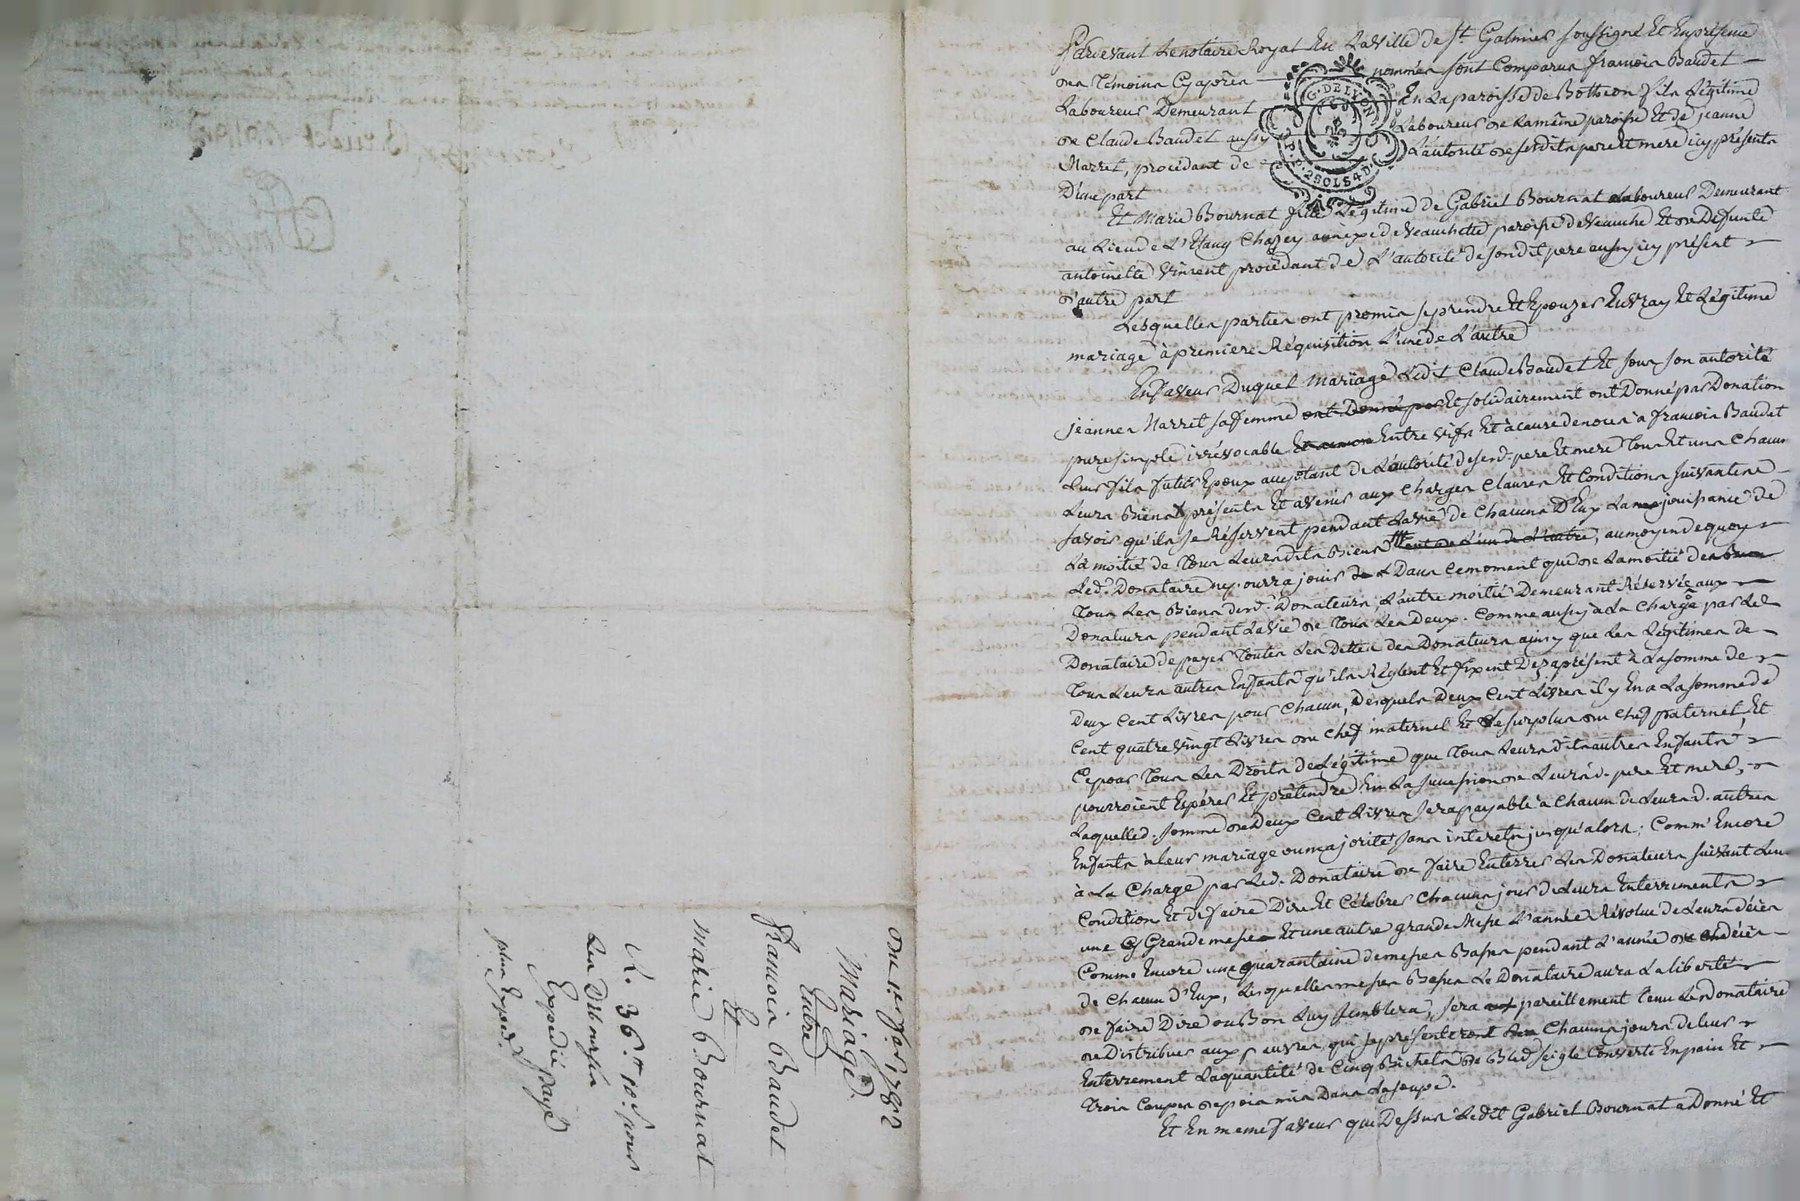 Pardevant Lenotaire Royal En LaVille de St Galmier soussigné Et Enprésence
des Témoins Cyaprès nommés sont Comparus françois Baudet
Laboureur Demeurant En Laparoisse de Bothéon fils Légitime
de Claude Baudet aussy Laboureur de Lamême paroisse Et de jeanne
Marret, procédant de L'autorité de sesdits pere Et mere icy présents
D'une part
G. DE LYON
2 SOLS 4 D.
Et Marie Bournat fille Légitime de Gabriel Bournat Laboureur Demeurant
au Lieu de L'Etang Chazey annexe de Veauchette paroisse de Veauche Et de Defunte
antoinette Vincent procédant de L'autorité de sondit pere aussy icy présent
d'autre part
Lesquelles parties ont promis se prendre Et Epouzer En Vray Et Légitime
mariage à premiere Réquisition L'une de L'autre
En faveur Duquel Mariage Ledit Claude Baudet Et sous son autorité
jeanne Marret sa femme ont Donné par Et solidairement ont Donné par Donation
pure simple irrévocable Entre Vifs Et à cause de noces à françois Baudet
Leur fils futur Epoux acceptant de L'autorité de sesd. pere Et mere Tous Et uns Chacuns
Leurs Biens présents Et avenir aux Charges Clauses Et Conditions suivantes
savoir qu'ils se Réservent pendant La vie de Chacuns D'Eux La jouissance de
La moitié de Tous Leursdits Biens de L'un de L'autre, au moyen de quoy
Led. Donataire ne pourra jouir Dans Ce moment que de La moitié des
Tous Les Biens desd. Donateurs L'autre moitié Demeurant Réservée aux
Donateurs pendant La vie de Tous Les Deux. Comme aussy à La Charge par Led.
Donataire de payer Toutes Les Dettes des Donateurs ainsy que Les Légitimes de
Tous Leurs autres Enfants qu'ils Réglent Et fixent Dez aprésent à La somme de
Deux Cent Livres pour Chacun, Desquels Deux Cent Livres il y En a La somme de
Cent quatre Vingt Livres du Chef maternel Et Le surplus du Chef paternel, Et
Ce pour Tous Les Droits de Légitime que Tous Leursdits autres Enfants
pourroient Espérer Et prétendre En La succession de Leursd. pere Et mere,
Laquelle d. somme de Deux Cent Livres sera payable à Chacun de Leursd. autres
Enfants à Leur mariage ou majorité sans interets jusqu'alors; Comm' Encore
à La Charge par Led. Donataire de faire Enterrer Les Donateurs suivant Leur
Condition Et de faire Dire Et Célébrer Chacuns jour de Leurs Enterrements
une Grande messe Et une autre grande Messe L'année Révolue de Leurs décès
Comme Encore une quarantaine de messes Basses pendant L'année du décès
de Chacun D'Eux, Lesquelles messes Basses Le Donataire aura La liberté
de faire Dire ou Bon Luy semblera, sera pareillement Tenu Led. Donataire
de Distribuer aux pauvres qui se présenteront Chacuns jours de leur
Enterrement La quantité de Cinq Bichets de Bled seigle Converti En pain Et
Trois Coupes de pois mis Dans La soupe.
Et En meme faveur que Dessus Ledit Gabriel Bournat a Donné Et
1782
Mariage
Entre
françois Baudet
Et
marie Bournat
Les Déboursés
Expédié payé
plus Expéd.